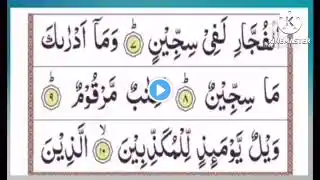 الْفُجَّارِ لَفِيْ سِجِّيْنٍ ۝٧ وَمَاۤ اَدْرٰىكَ
مَا سِجِّيْنٌ ۝٨ كِتٰبٌ مَّرْقُوْمٌ ۝٩
وَيْلٌ يَّوْمَىِٕذٍ لِّلْمُكَذِّبِيْنَ ۝١٠ الَّذِيْنَ
KINEMASTER